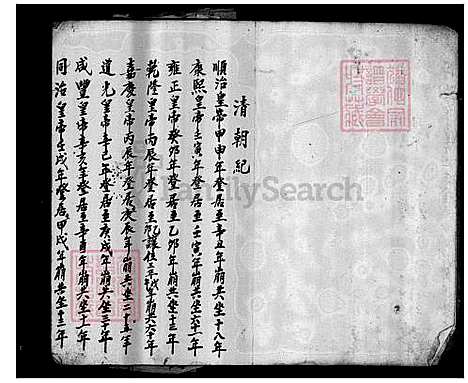 清朝紀
順治皇帝甲申年登居至辛丑年崩共坐十八年
康熙皇帝壬寅年登居至壬寅年崩共坐六十一年
雍正皇帝癸卯年登居至乙卯年崩共坐十三年
乾隆皇帝丙辰年登居至 年崩共六十年
嘉慶皇帝丙辰年登居庚辰年崩共坐 五年
道光皇帝辛巳年登居至庚戌年崩共坐三十年
咸豐皇帝辛亥年登居至辛酉年崩共坐十一年
同治皇帝壬戌年登居甲戌年崩共坐十三年
FamilySearch